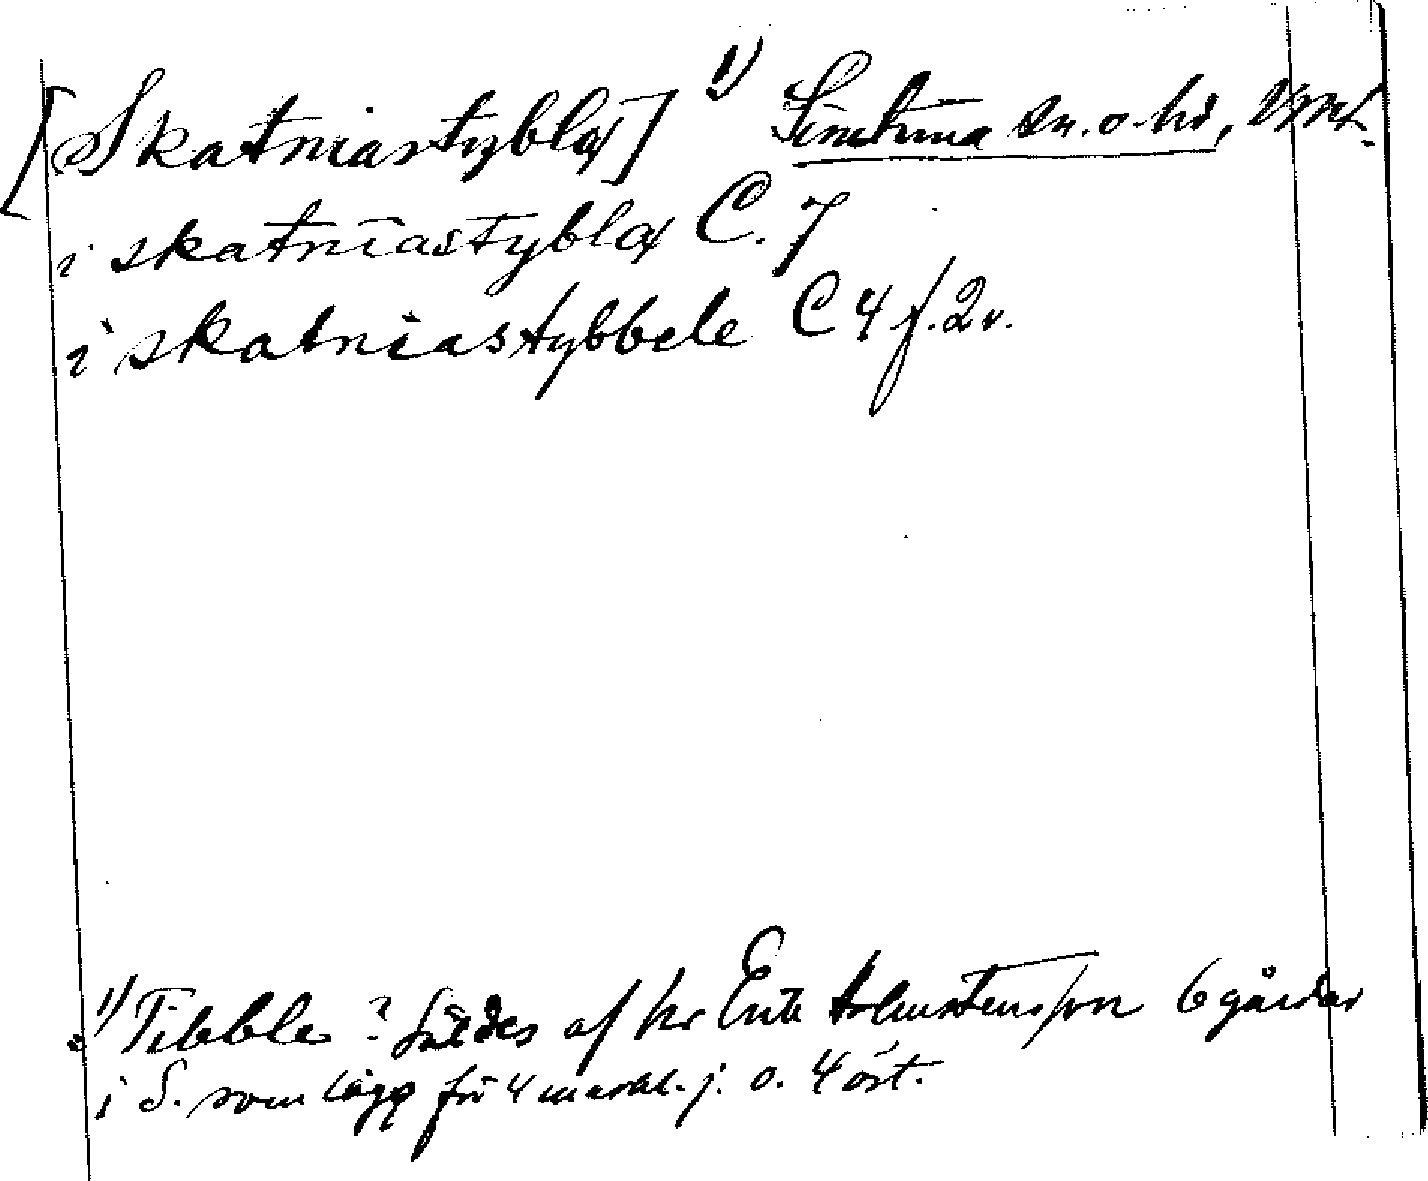 [Skatniastyblæ] 1) Simtuna sn. o. hd, Vml.
i skatniastyblæ C. 7
i skatniastybbele C 4 f. 2 v.
1) Tibble? Såldes af hr Erik Holmstensson 6 gårdar
i S. som lågo för 4 markl. j. o. 4 öst.